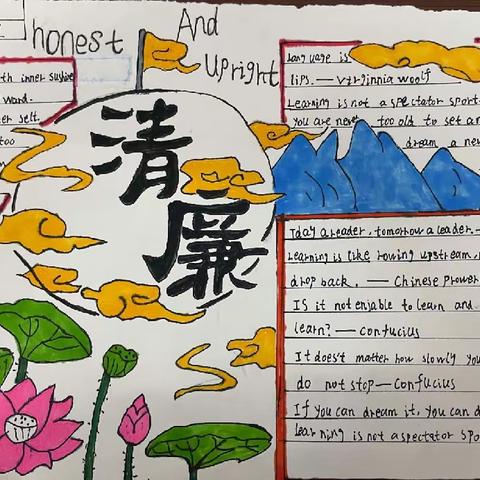 honest
And
upright
清
廉
th inner
ward.
er self.
too
Language is
lips. — virginnia woolf
Learning is not a spectator sport
you are never too old to set an
dream a new
Tday a reader, tomorrow a leader. —
Learning is like rowing upstream,
drop back. — Chinese prower
IS it not enjable to learn and
learn? — confucius
It does't matter how slowly you
do not stop — Confucius
If you can dream it, you can d
Learning is not a spectator spo